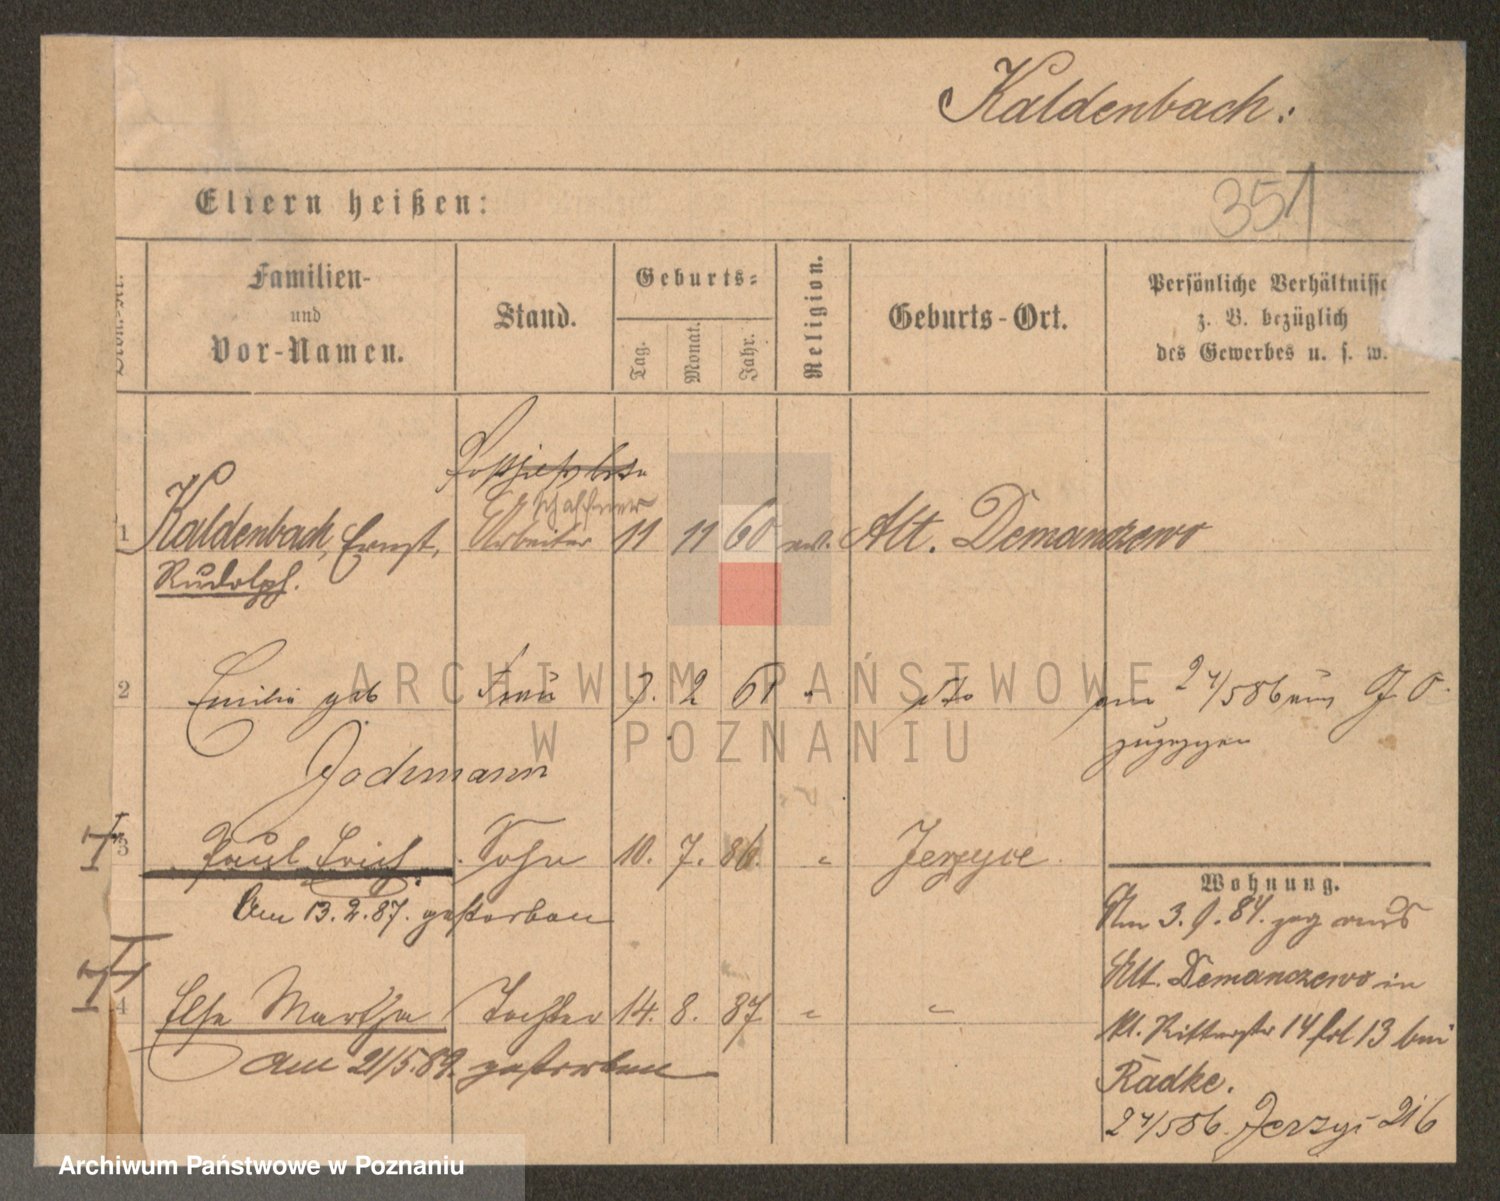 Kaldenbach.
351
Eltern heißen:
Familien-
und
Vor-Namen.
Stand.
Geburts-
Tag.
Monat.
Jahr.
Religion.
Geburts-Ort.
Persönliche Verhältnisse
z. B. bezüglich
des Gewerbes u. s. w.
schaffner
1 Kaldenbach, Ernst, Arbeiter 11 11 60 ev. Alt. Demanczewo
Rudolph.
2 Emilie geb Frau 7. 2 61 " dto am 24/5 86 aus J. O.
zugezogen
Jochmann
3 Paul Erich. Sohn 10. 7. 86. " Jerzyce
Am 13. 2. 87. gestorben
4 Else Martha Tochter 14. 8. 87 " "
am 21/5.89. gestorben
Wohnung.
Am 3. 9. 84. zog aus
Alt. Demanczewo in
Kl. Ritterstr 14 13 bei
Radke.
24/5 86. Jerzyce 216
ARCHIWUM PAŃSTWOWE
W POZNANIU
Archiwum Państwowe w Poznaniu